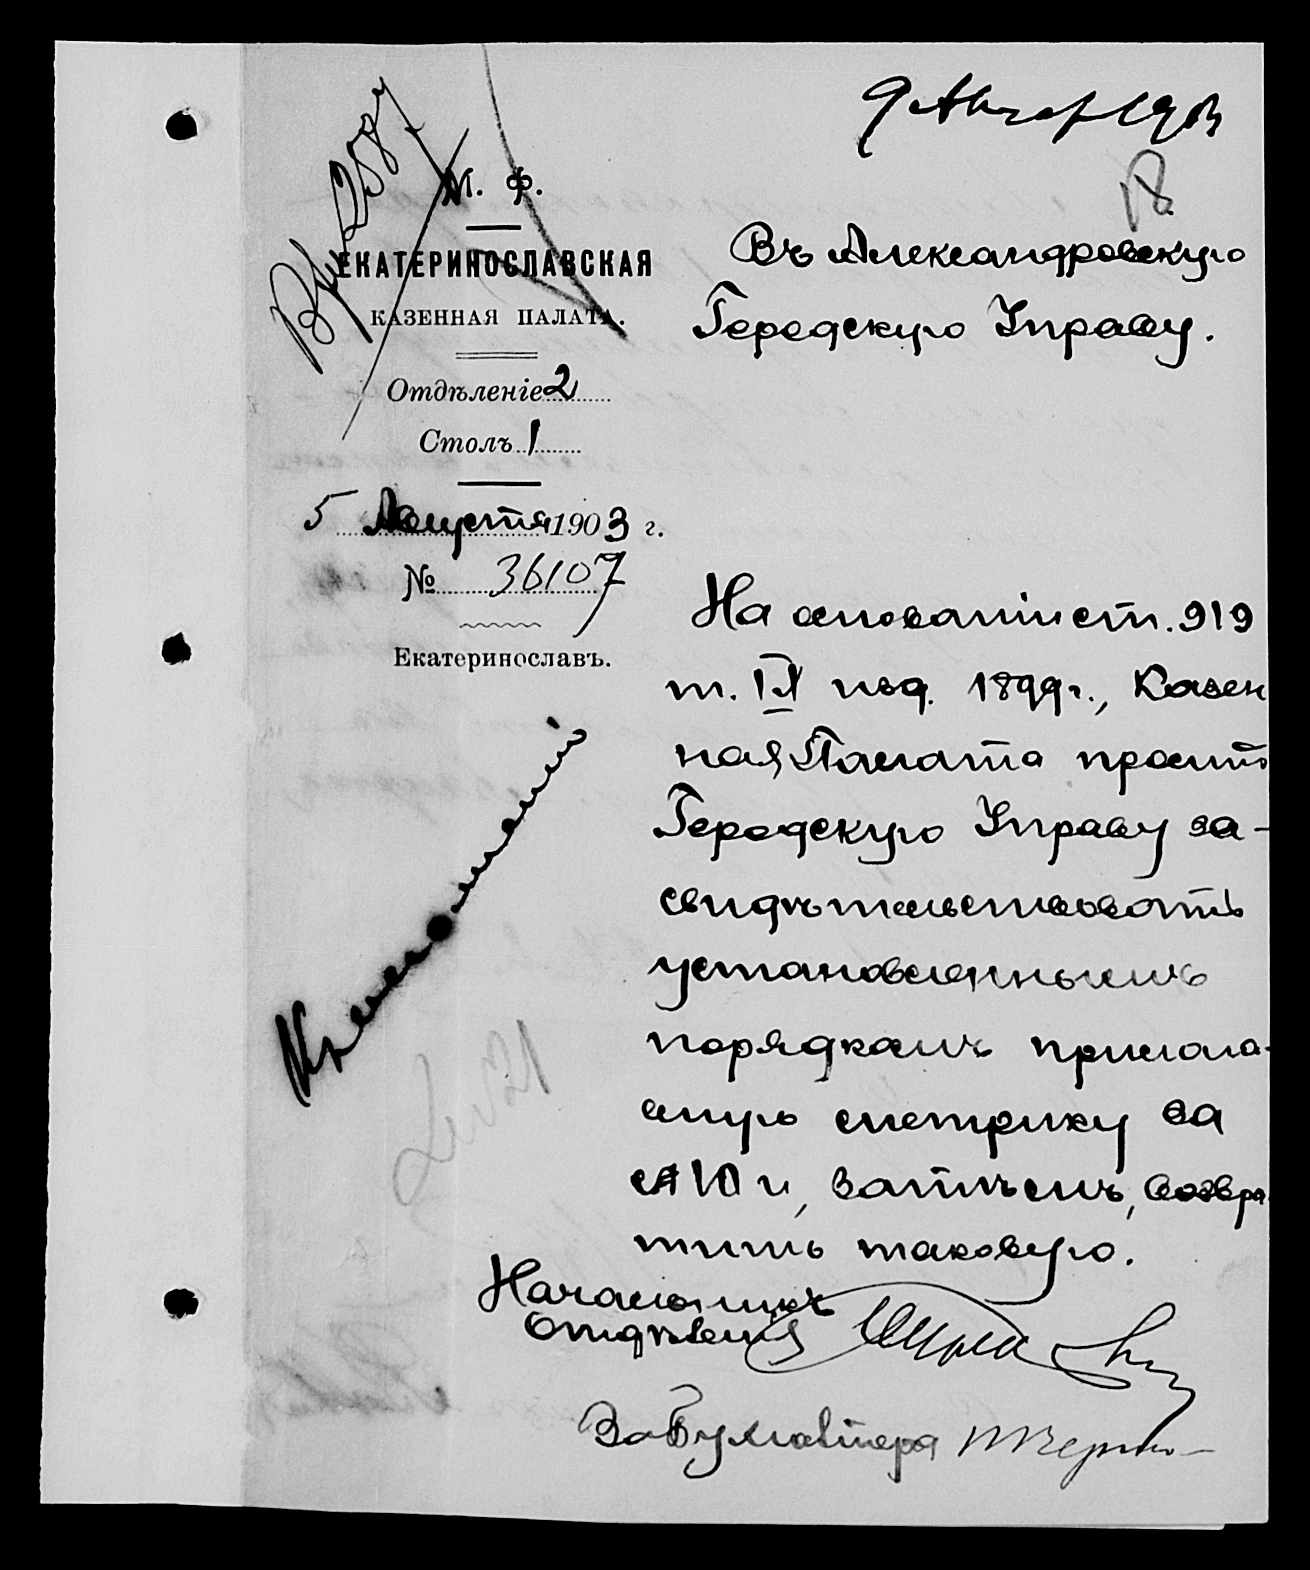 9 Август 1903
18
М. Ф.
ЕКАТЕРИНОСЛАВСКАЯ
КАЗЕННАЯ ПАЛАТА.
Отдѣленіе 2
Столъ 1
5 Августа 1903 г.
№ 36107
Екатеринославъ.
Въ Александровскую
Городскую Управу.
На основаніи ст. 919
т. IX изд. 1899 г., Казен
ная Палата проситъ
Городскую Управу за-
свидѣтельствовать
установленнымъ
порядкомъ прилага-
емую метрику за
№ 10 и, затѣмъ, возвра
тить таковую.
Начальникъ
Отдѣленія
За Бухгалтера